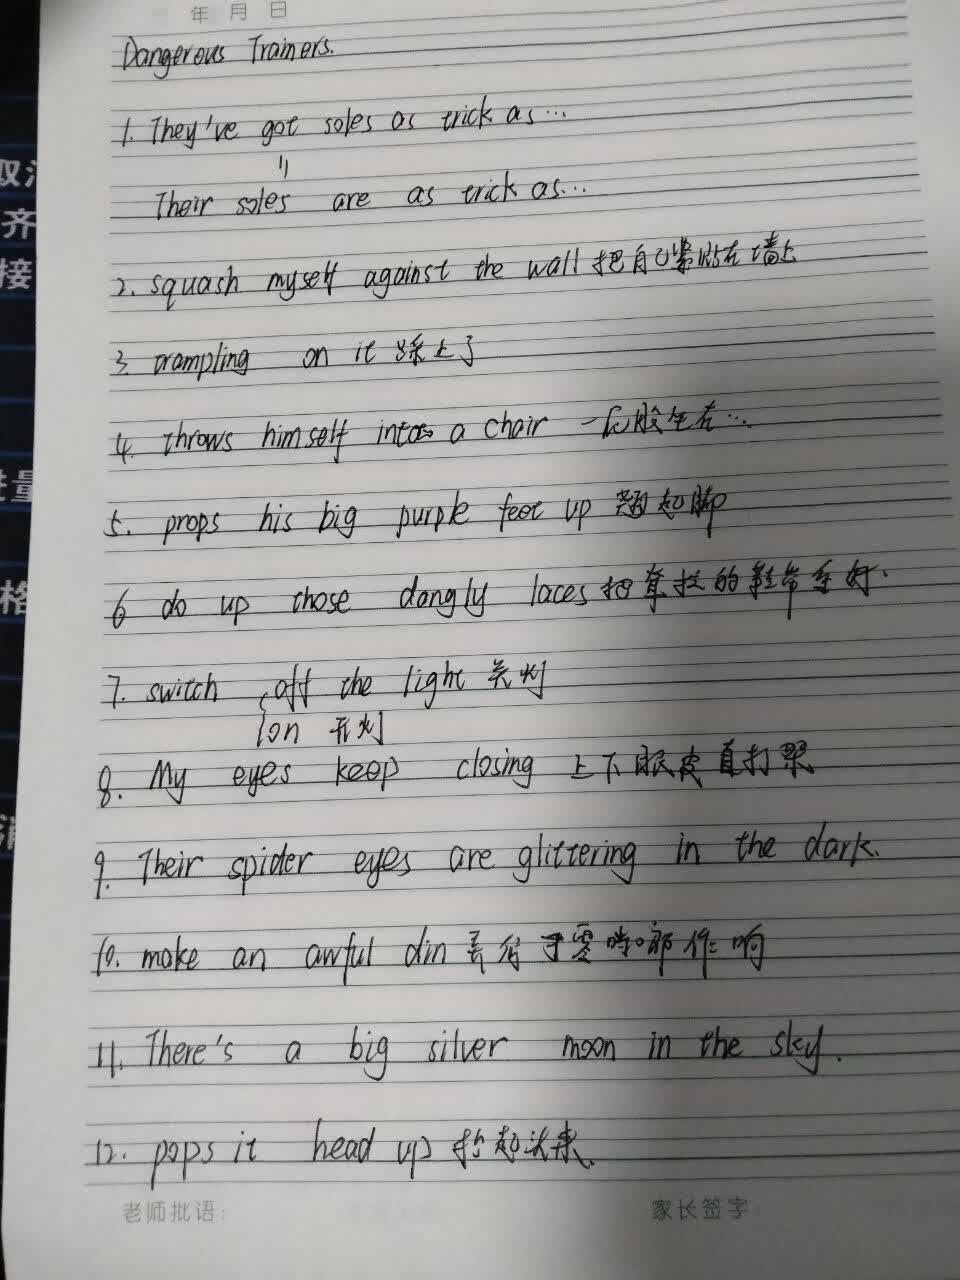 年 月 日
Dangerous Trainers.
1. They've got soles as trick as...
Their soles are as trick as...
2. squash myself against the wall 把自己紧贴在墙上
3. trampling on it 踩上了
4. throws himself into a chair 一屁股坐在...
5. props his big purple feet up 翘起脚
6 do up those dangly laces 把耷拉的鞋带系好.
7. switch off the light 关灯
on 开灯
8. My eyes keep closing 上下眼皮直打架
9. Their spider eyes are glittering in the dark.
10. make an awful din 响
11. There's a big silver moon in the sky.
12. pops it head up 抬起头来.
老师批语:
家长签字
取
齐
接
格